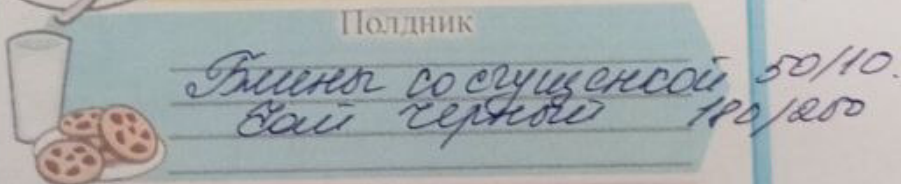 Полдник
Блины со сгущенкой 50/10.
Чай черный 180/200